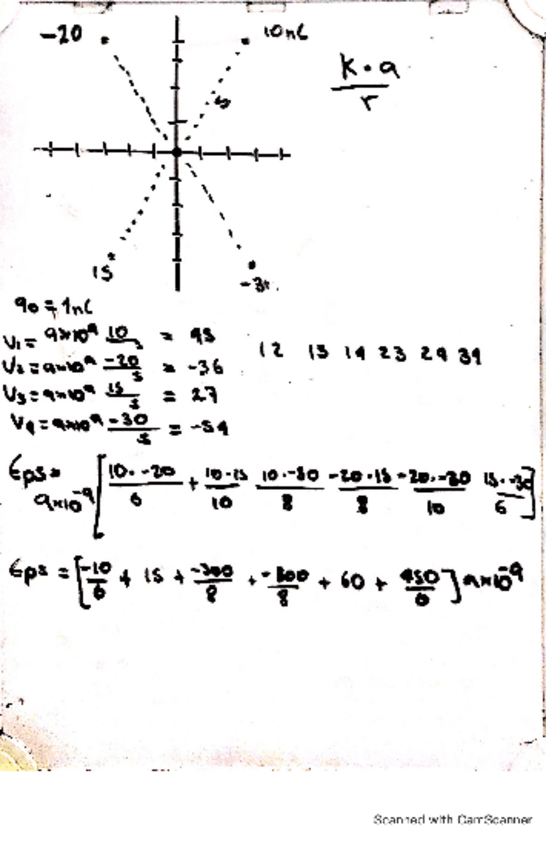 -20 10nC
k·q
r
5
15 -30
q0 = 1nC
V1 = 9x10^9 10/5 = 18
V2 = 9x10^9 -20/5 = -36
V3 = 9x10^9 15/5 = 27
V4 = 9x10^9 -30/5 = -54
12 13 14 23 24 34
Eps = 9x10^-9 [10·-20/6 + 10·15/10 10·-30/8 -20·15/8 -20·-30/10 15·-30/6]
Eps = [-10/6 + 15 + -300/8 + -300/8 + 60 + 450/6] 9x10^-9
Scanned with CamScanner